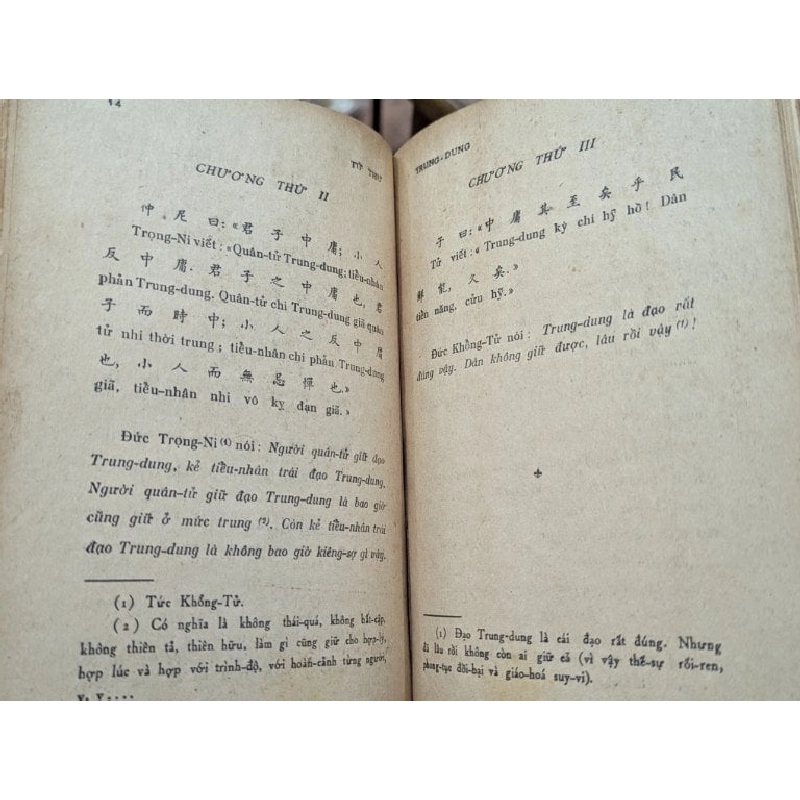 14
TỨ THƯ
CHƯƠNG THỨ II
仲尼曰：«君子中庸；小人
Trọng-Ni viết : «Quân-tử Trung-dung; tiểu-nhân
反中庸．君子之中庸也，君
phản Trung-dung. Quân-tử chi Trung-dung giã quân
子而時中；小人之反中庸
tử nhi thời trung ; tiểu-nhân chi phản Trung-dung
也，小人而無忌憚也．»
giã, tiểu-nhân nhi vô kỵ đạn giã.»
Đức Trọng-Ni (1) nói : Người quân-tử giữ đạo
Trung-dung, kẻ tiểu-nhân trái đạo Trung-dung.
Người quân-tử giữ đạo Trung-dung là bao giờ
cũng giữ ở mức trung (2). Còn kẻ tiểu-nhân trái
đạo Trung-dung là không bao giờ kiêng-sợ gì vậy.
(1) Tức Khổng-Tử.
(2) Có nghĩa là không thái-quá, không bất-cập,
không thiên tả, thiên hữu, làm gì cũng giữ cho hợp-lý,
hợp lúc và hợp với trình-độ, với hoàn-cảnh từng người,
v. v....
TRUNG-DUNG
CHƯƠNG THỨ III
子曰：«中庸其至矣乎民
Tử viết : «Trung-dung kỳ chí hỹ hồ ! Dân
鮮能，久矣．»
tiển năng, cửu hỹ.»
Đức Khổng-Tử nói : Trung-dung là đạo rất
đúng vậy. Dân không giữ được, lâu rồi vậy (1) !
(1) Đạo Trung-dung là cái đạo rất đúng. Nhưng
đã lâu rồi không còn ai giữ cả (vì vậy thế-sự rối-ren,
phong-tục đồi-bại và giáo-hoá suy-vi).